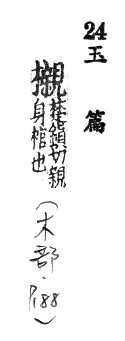 24 玉篇
櫬 楚鎮切親
身棺也
(木部, P188)